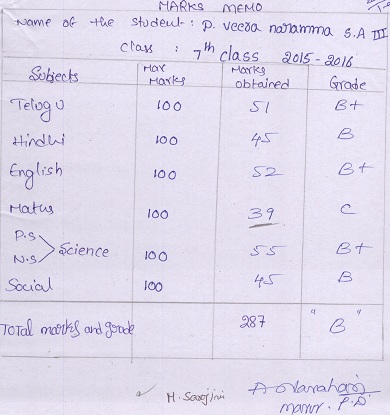 MARKS MEMO
Name of the student : P. veera naramma S.A III
class : 7th class 2015-2016
Subjects Max Marks Marks obtained Grade
Telugu 100 51 B+
Hindhi 100 45 B
English 100 52 B+
Maths 100 39 C
P.S
N.S > Science 100 55 B+
Social 100 45 B
Total marks and grade 287 "B"
M. Sarojini